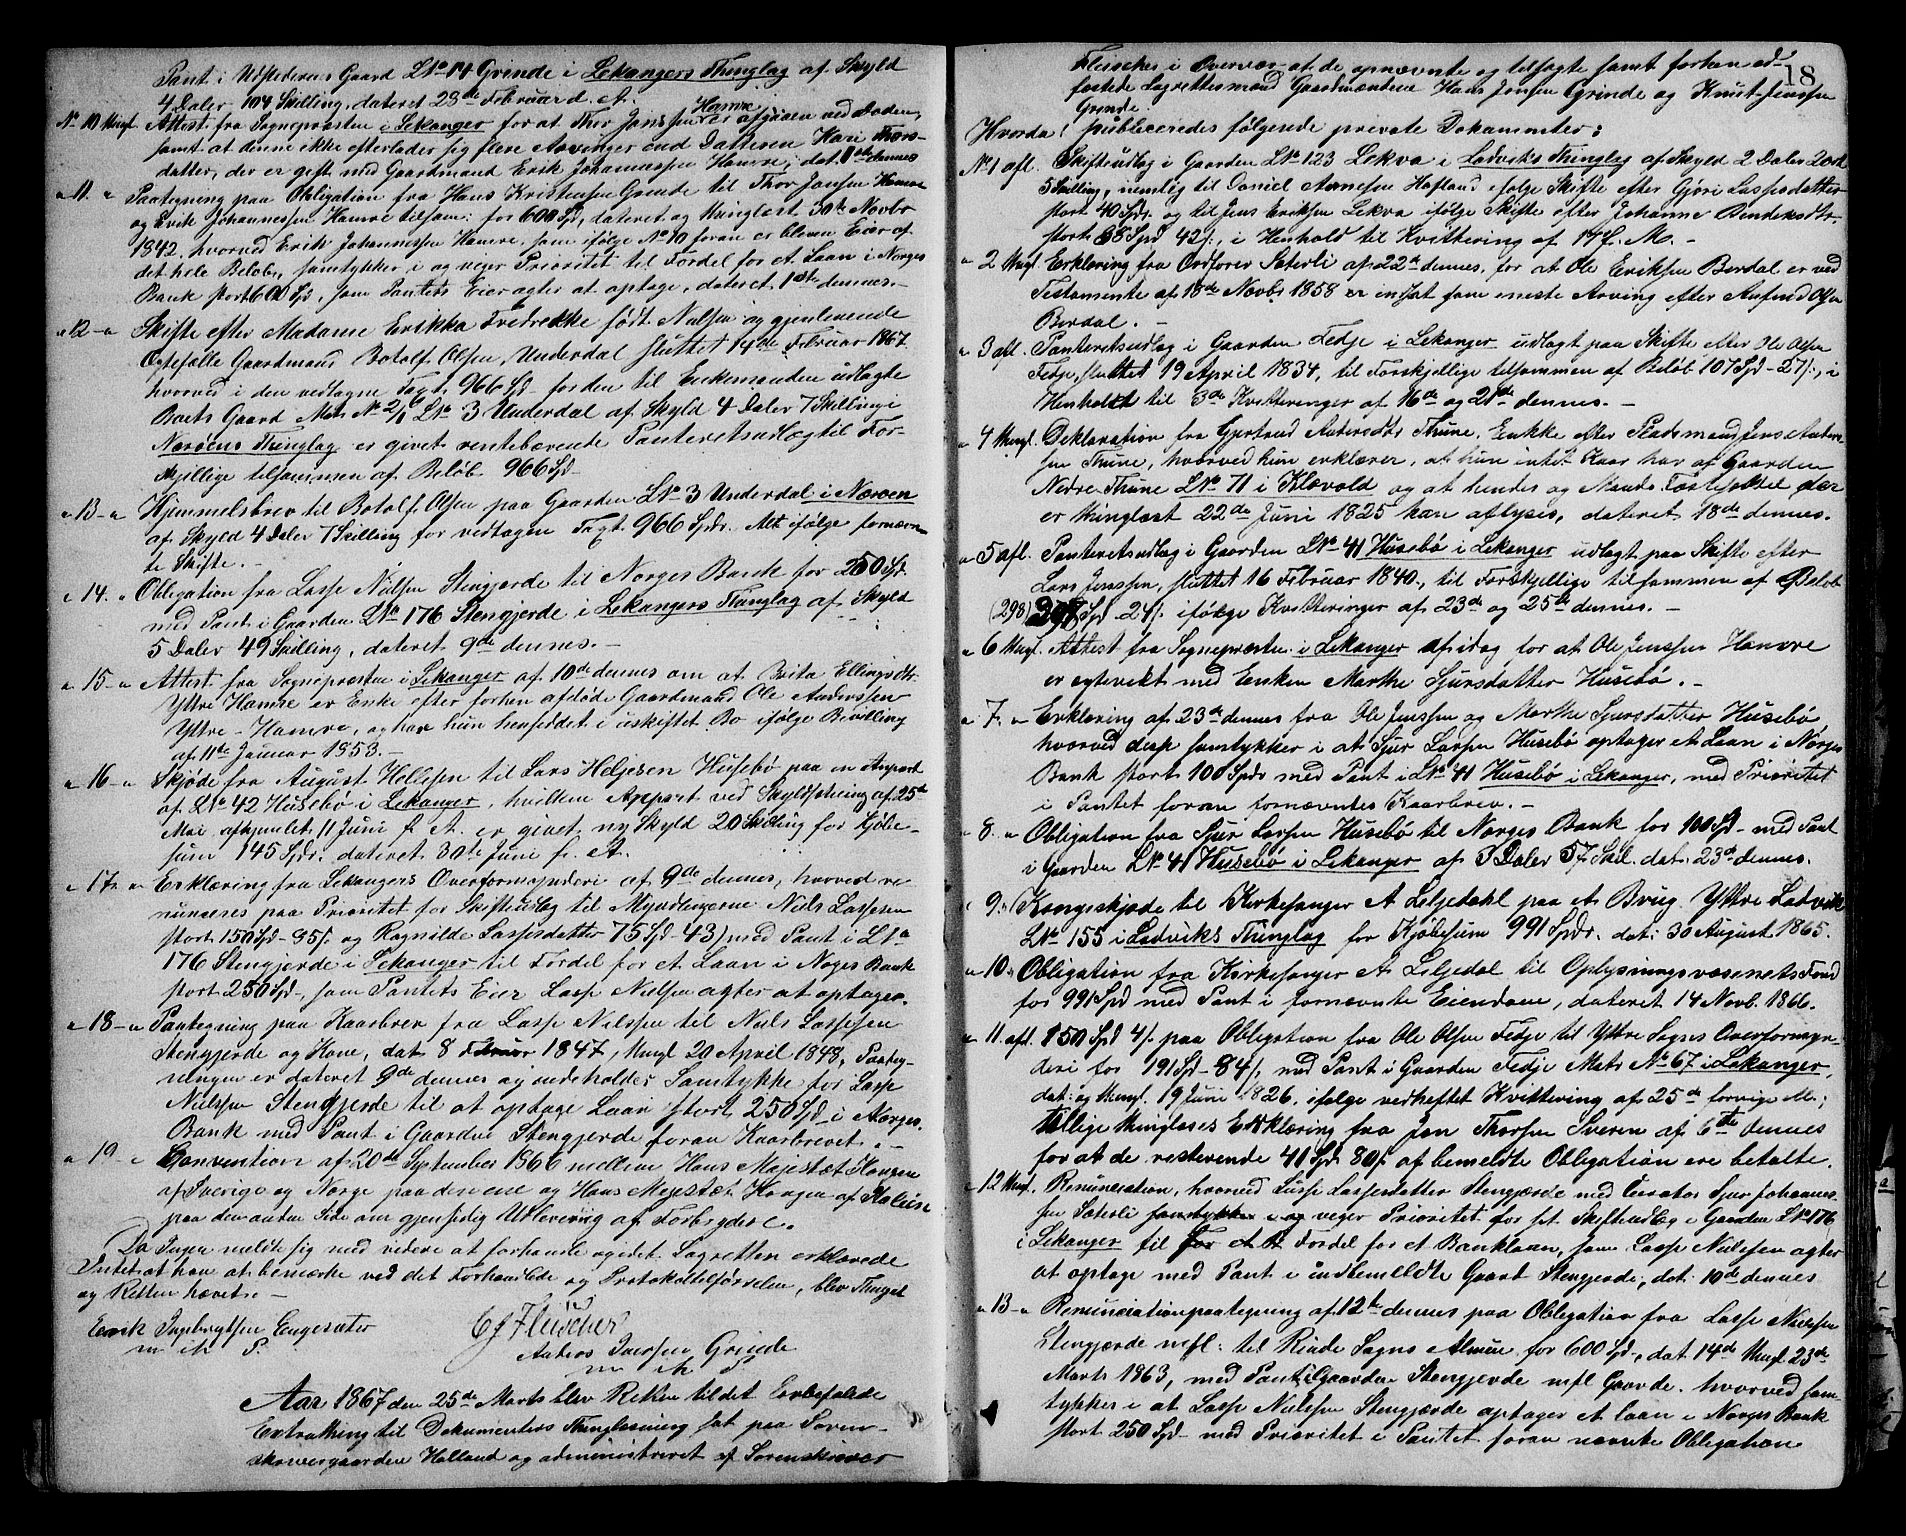 Pant i Udstederens Gaard LNo 14 Grinde i Lekangers Thinglag af Skyld
4 Daler 104 Skilling, dateret 28de Februar d. A.
No 10 thingl. Attest fra Sognepræsten i Lekanger for at Thor Janssen Hamre er afgaaen ved Døden,
samt at denne ikke efterlader sig flere Arvinger end Datteren Kari Thors-
datter, der er gift med Gaardmand Erik Johannessen Hamre, dat. 1ste dennes
" 11. " Paategning paa Obligation fra Hans Kristensen Grinde til Thor Jansen Hamre
og Erik Johannessen Hamre tilsam: for 600 Spd, dateret og thinglæst 30te Novbr
1842, hvorved Erik Johannessen Hamre, som ifølge No 10 foran er bleven Eier af
det hele Beløb, samtykker i og viger Prioritet til Fordel for et Laan i Norges
Bank stort 600 Spd, som Pantets Eier agter at optage, dateret 1ste dennes.
" 12 - " Skifte efter Madame Erikka Fredrekke født Nielsen og gjenlevende
Ægtefælle Gaardmand Botolf Olsen, Underdal sluttet 14de Februar 1867.
hvorved i den vedtagne Taxt, 966 Spd for den til Enkemanden udlagte
Boets Gaard Matr No 2/1 LNo 3 Underdal af Skyld 4 Daler 7 Skilling i
Nærøens Thinglag er givet rentebærende Panteretsudlæg til For-
skjellige tilsammen af Beløb 966 Spd
" 13 - " Hjemmelsbrev til Botolf Olsen paa Gaarden LNo 3 Underdal i Nærøen
af Skyld 4 Daler 7 Skilling for vedtagen Taxt 966 Spdr. Alt ifølge fornævn-
te Skifte.
" 14. " Obligation fra Lasse Nielsen Stengjerde til Norges Bank for 250 Spd
med Pant i Gaarden LNo 176 Stengjerde i Lekangers Thinglag af Skyld
5 Daler 49 Skilling, dateret 9de dennes.
" 15 - " Attest fra Sognepræsten i Lekanger af 10de dennes om at Brita Ellingsdtr.
Yttre Hamre er Enke efter forhen afdøde Gaardmand Ole Anderssen
Yttre-Hamre, og har hun hensiddet i uskiftet Bo ifølge Bevilling
af 11te Januar 1853.
" 16 - " Skjøde fra August Hellesen til Lars Heljesen Husebø paa en Appart
af LNo 42 Husebø i Lekanger, hvilken Appart ved Skyldsetning af 25de
Mai afhjemlet 11 Juni f. A. er givet ny Skyld 20 Skilling for Kjøbe-
sum 145 Spdr. dateret 30te Juni f. A.
" 17. " Erklæring fra Lekangers Overformynderi af 9de dennes, hvorved re-
nunceres paa Prioritet for Skifteudlæg til Myndlingerne Niels Lassesen
stort 150 Spd - 85/. og Ragnilde Lassesdatter 75 Spd - 43) med Pant i LNo
176 Stengjerde i Lekanger til Fordel for et Laan i Noges Bank
stort 250 Spd, som Pantets Eier Lasse Nielsen agter at optage.
" 18 - " Paategning paa Kaarbrev fra Lasse Nielssen til Niels Lassesen
Stengjerde og Kone, dat 8 Februar 1847, thingl 20 April 1848, Paateg-
ningen er dateret 9de dennes og indeholder Samtykke for Lasse
Nielsen Stengjerde til at optage Laan stort 250 Spd i Norges
Bank med Pant i Gaarden Stengjerde foran Kaarbrevet.
" 19 - " Convention af 20de September 1866 mellem Hans Majestæt Kongen
af Sverige og Norge paa den ene og Hans Majestæt Kongen af Italien
paa den anden Side om gjensidig Udlevering af Forbrydere.
Da Ingen meldte sig med videre at forhandle og idet Lagretten erklærede
Intet at have at bemærke ved det Forhandlede og Protokoltilførselen, blev Thinget
og Retten hævet.
Eerik Ingebrigtsen Engesæter
m ih P.
CJ Fleischer
Anders Iversen Grinde
m ih P
Aar 1867 den 25de Marts blev Retten til det Anbefalede
Extrathing til Dokumenters Thinglæsning sat paa Soren-
skrivergaarden Holland og administreret af Sorenskriver
18
Fleischer i Overvær af de opnævnte og tilsagte samt forhen ed-
fæstede Lagrettesmænd Gaardmændene Hans Jonsen Grinde og Knut Jenssen
Grinde.
Hvorda: publiceredes følgende private Dokumenter:
No 1 afl. Skifteudlæg i Gaarden LNo 123 Lekva i Ladviks Thinglag af Skyld 2 Daler 2 Ort
5 Skilling, nemlig til Daniel Arnesen Hafland ifølge Skifte efter Gjøri Lassesdatter
stort 40 Spdr. og til Jens Eriksen Lekva ifølge Skifte efter Johanne Bendiksdtr.
stort 68 Spd 42/., i Henhold til Kvittering af 14 f. M.
" 2 thingl. Erklæring fra Ordfører Sæterli af 22de dennes, for at Ole Eriksen Bordal er ved
Testamente af 18de Novbr 1858 er indsat som eneste Arving efter Anfind Olsen
Bordal.
" 3 afl. Panteretsudlæg i Gaarden Fedje i Lekanger udlagt paa Skifte efter Ole Olsen
Fedje, sluttet 19 April 1834, til Forskjellige tilsammen af Beløb 107 Spd - 27/., i
Henholdt til 3de Kvitteringer af 16de og 21de dennes.
" 4 thingl. Deklaration fra Gjertrud Andersdtr Thune, Enkke efter Pladsmand Jens Ander-
sen Thune, hvorved hun erklærer, at hun intet Kaar har af Gaarden
Nedre Thune LNo 71 i Klævold og at hendes og Mands Fæsteseddel der
er thinglæst 22de Juni 1825 kan aflyses, dateret 18de dennes.
" 5 afl. Panteretsudlæg i Gaarden LNo 41 Husebø i Lekanger udlagt paa Skifte efter
Lars Jenssen, sluttet 16 Februar 1840, til Forskjellige tilsammen af Beløb
(298) Spd 24/. ifølge Kvitteringer af 23de og 25de dennes.
" 6 thingl. Attest fra Sognepræsten i Lekanger af idag for at Ole Jenssen Hamre
er egteviet med Enken Marthe Sjursdatter Husebø.
" 7. " Erklæring af 23de dennes fra Ole Jenssen og Marthe Sjursdatter Husebø,
hvorved disse samtykker i at Sjur Lassen Husebø optager et Laan i Norges
Bank stort 100 Spdr med Pant i LNo 41 Husebø i Lekanger, med Prioritet
i Pantet foran fornævntes Kaarbrev.
" 8. " Obligation fra Sjur Lassen Husebø til Norges Bank for 100 Spd - med Pant
i Gaarden LNo 41 Husebø i Lekanger af 3 Daler 57 Skil. dat: 23de dennes.
" 9. " Kongeskjøde til Kirkesanger A Liljedahl paa et Brug Yttre Ladvik
LNo 155 i Ladviks Thinglag for Kjøbesum 991 Spdr. dat: 30 August 1865.
" 10. " Obligation fra Kirkesanger A Liljedal til Oplysningsvæsenets Fond
for 991 Spd med Pant i fornævnte Eiendom, dateret 14 Novb. 1866.
" 11. afl. 150 Spd 4/. paa Obligation fra Ole Olsen Fedje til Yttre Sogns Overformyn-
deri for 191 Spd - 84/., med Pant i Gaarden Fedje Matr No 67 i Lekanger,
dat: og thingl. 19 Juni 1826. ifølge vedheftet Kvittering af 25de forrige M.;
tillige thinglæses Erklæring fra Jon Thorsen Sveren af 6te dennes
for at de resterende 41 Spd. 80/. af bemeldte Obligation ere betalte.
" 12 thingl. Renunceration, hvorved Lussi Lassesdatter Stengjærde med Curator Sjur Johannes-
sen Sæterli samtykker i og viger Prioritet for sit Skifteudlæg i Gaarden LNo 176
i Lekanger til Fordel for et Banklaan, som Lasse Nielsen agter
at optage med Pant i indbemeldte Gaard Stengjerde, dat: 10de dennes
" 13 - " Renunciationspaategning af 12te dennes paa Obligation fra Lasse Nielsen
Stengjærde mfl: til Rinde Sogns Almue for 600 Spd, dat 14de thingl 23de
Marts 1963, med Pant i Gaarden Stengjerde mfl Gaarde. hvorved sam-
tykker i at Lasse Nielsen Stengjærde optager et laan i Norges Bank
stort 250 Spd - med Prioritet i Pantet foran nævnte Obligation